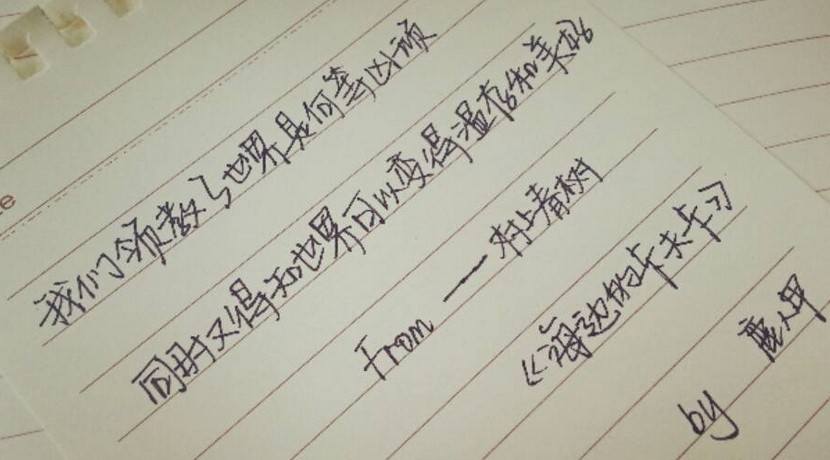 我们领教了世界是何等凶顽
同时又得知世界可以变得温存和美好
From — 村上春树
《海边的卡夫卡》
by 鹿人甲